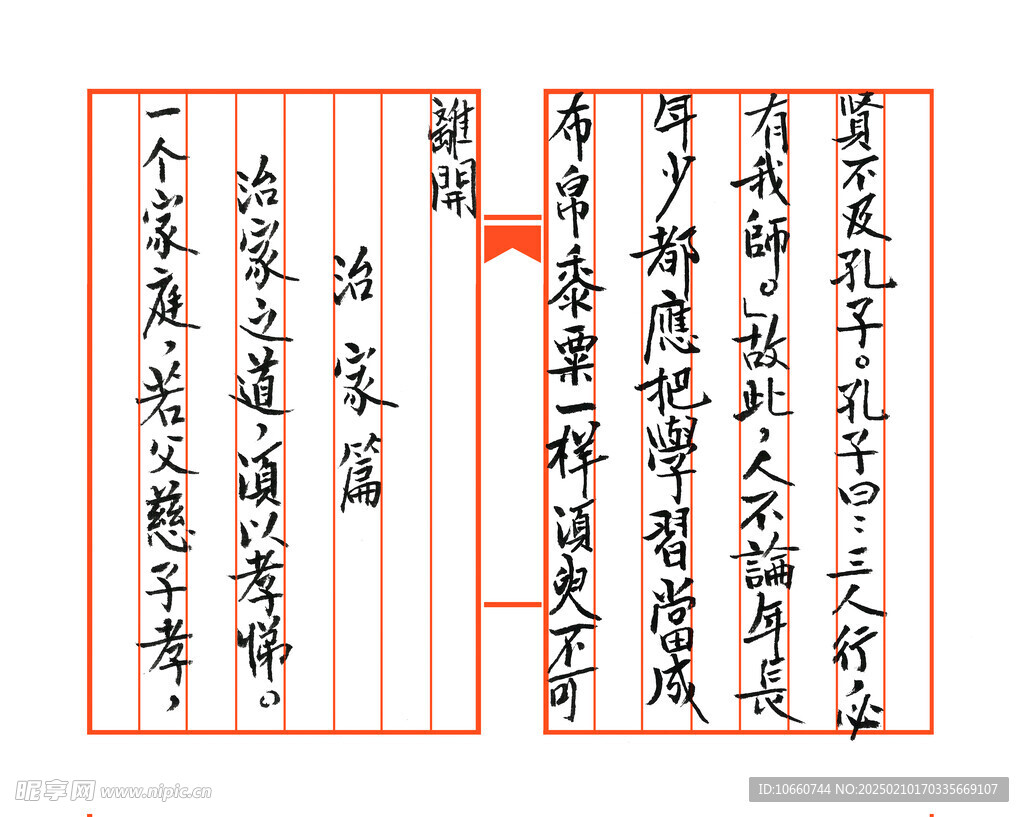 賢不及孔子。孔子曰：三人行，必
有我師。」故此，人不論年長
年少都應把學習當成
布帛黍粟一样須臾不可
離開
治家篇
治家之道，須以孝悌。
一个家庭，若父慈子孝，
昵享网 www.nipic.cn
ID:10660744 NO:20250210170335669107